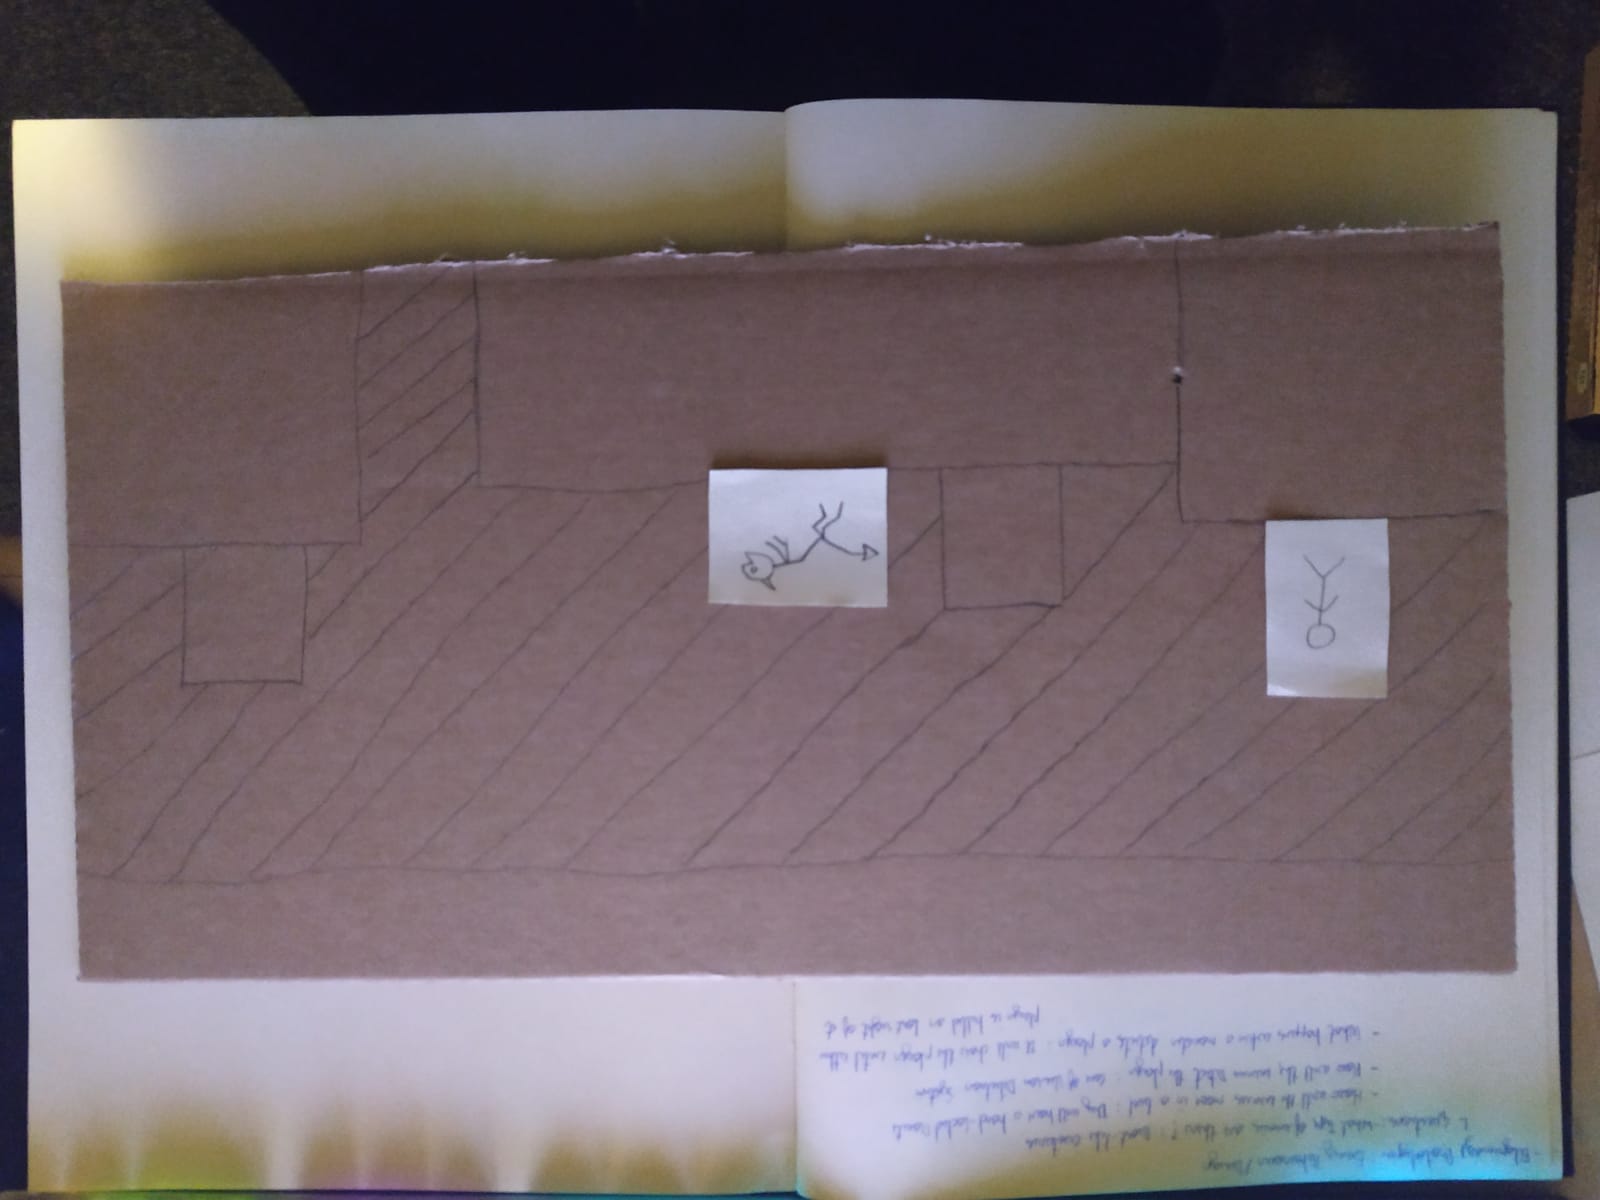 - Pilgrimage Prototype: Enemy Behaviour / Design
L Questions: - What Type of enemies are there? : Beast-like Creatures
- How will the enemies move in a level : They will have a hard-locked Route
- How will the enemies Detect the player : Cone of Vision Detection System
- What happens when a monster detects a player : It will chase the player until either
player is killed or lost sight of it